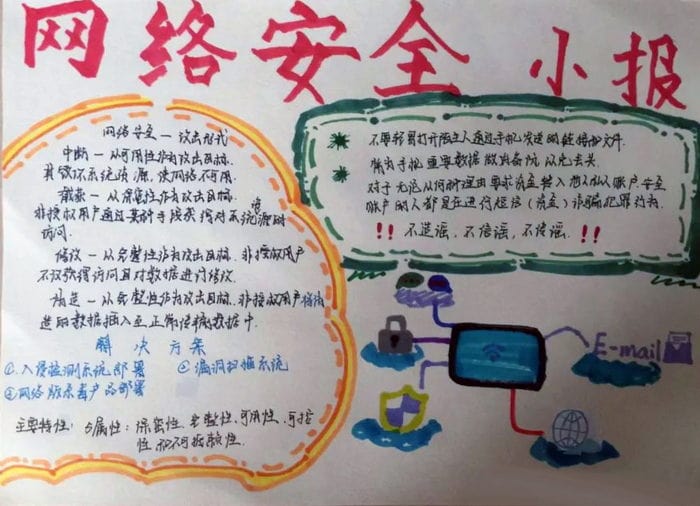 网络安全 小报
网络安全—攻击形式
中断—从可用性作为攻击目标.
其毁坏系统资源,使网络不可用.
截获—从保密性作为攻击目标.
非授权用户通过某种手段获得对系统资源的
访问.
修改—从完整性作为攻击目标.非授权用户
不仅获得访问且对数据进行修改.
捏造—从完整性作为攻击目标.非授权用户将捏
造的数据插入至正常传输数据中.
解决方案
①入侵检测系统部署 ②漏洞扫描系统
③网络版杀毒产品部署
主要特性:5属性:保密性、完整性、可用性、可控
性和不可抵赖性.
不要轻易打开陌生人通过手机发送的链接和文件.
为手机重要数据做为备防 以免丢失.
对于无论从何种理由要求资金转入他人私人账户.安全
账户的人都是在进行短信(资金)诈骗犯罪行为.
!! 不造谣,不信谣,不传谣. !!
E-mail